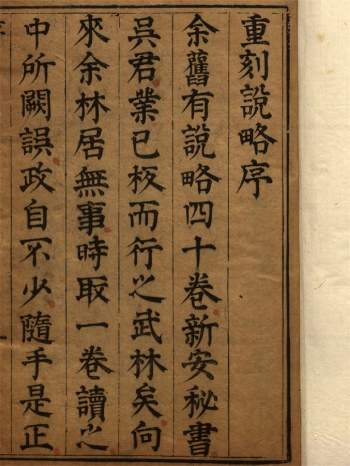 重刻說略序
余舊有說略四十卷新安秘書
吳君業已校而行之武林矣向
來余林居無事時取一卷讀之
中所闕誤政自不少隨手是正